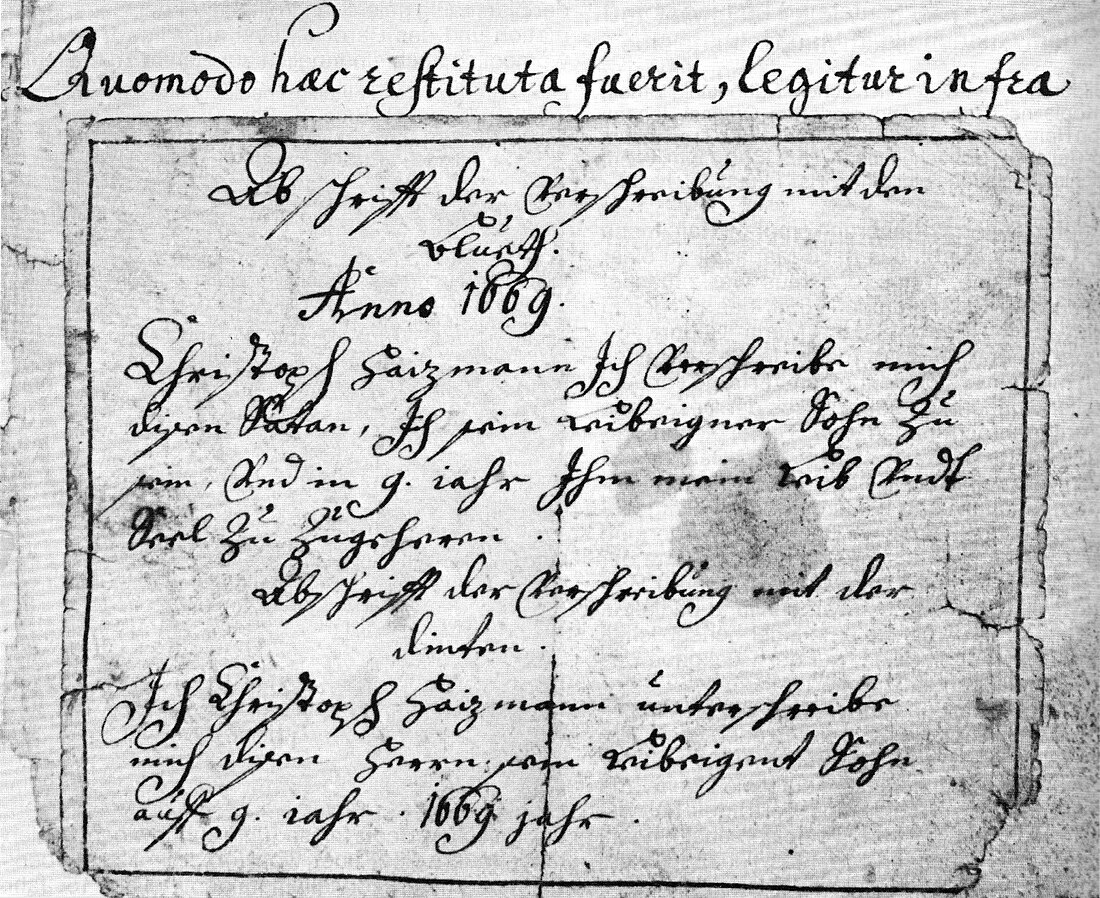 Quomodo haec restituta fuerit, legitur infra
Abschrifft der Verschreibung mit den
blueth.
Anno 1669.
Christoph Haizmann Ich Verschreibe mich
disen Satan, Ich sein Leibeigner Sohn Zu
sein, Vnd in 9. iahr Ihm mein Leib Vndt
Seel Zu Zugeheren.
Abschrifft der Verschreibung mit der
dinten.
Ich Christoph Haizmann unterschreibe
mich disen Herrn sein Leibeigent Sohn
auff 9. iahr. 1669 jahr.